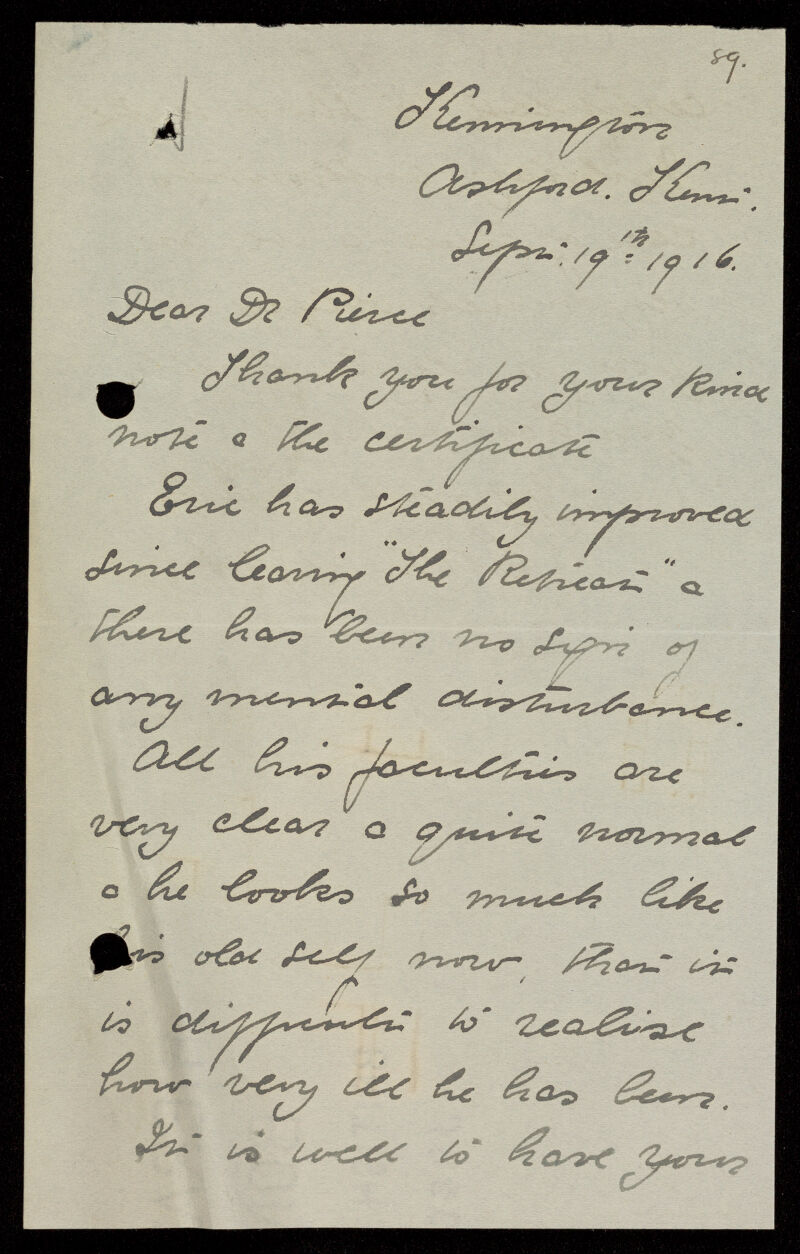 89.
Kennington
Ashford. Kent.
Sept. 19th 1916.
Dear Dr Pierce
Thank you for your kind
note & the certificate
Eric has steadily improved
since leaving "The Retreat" &
there has been no sign of
any mental disturbance.
All his faculties are
very clear & quite normal
& he looks so much like
his old self now, that it
is difficult to realise
how very ill he has been.
It is well to have your